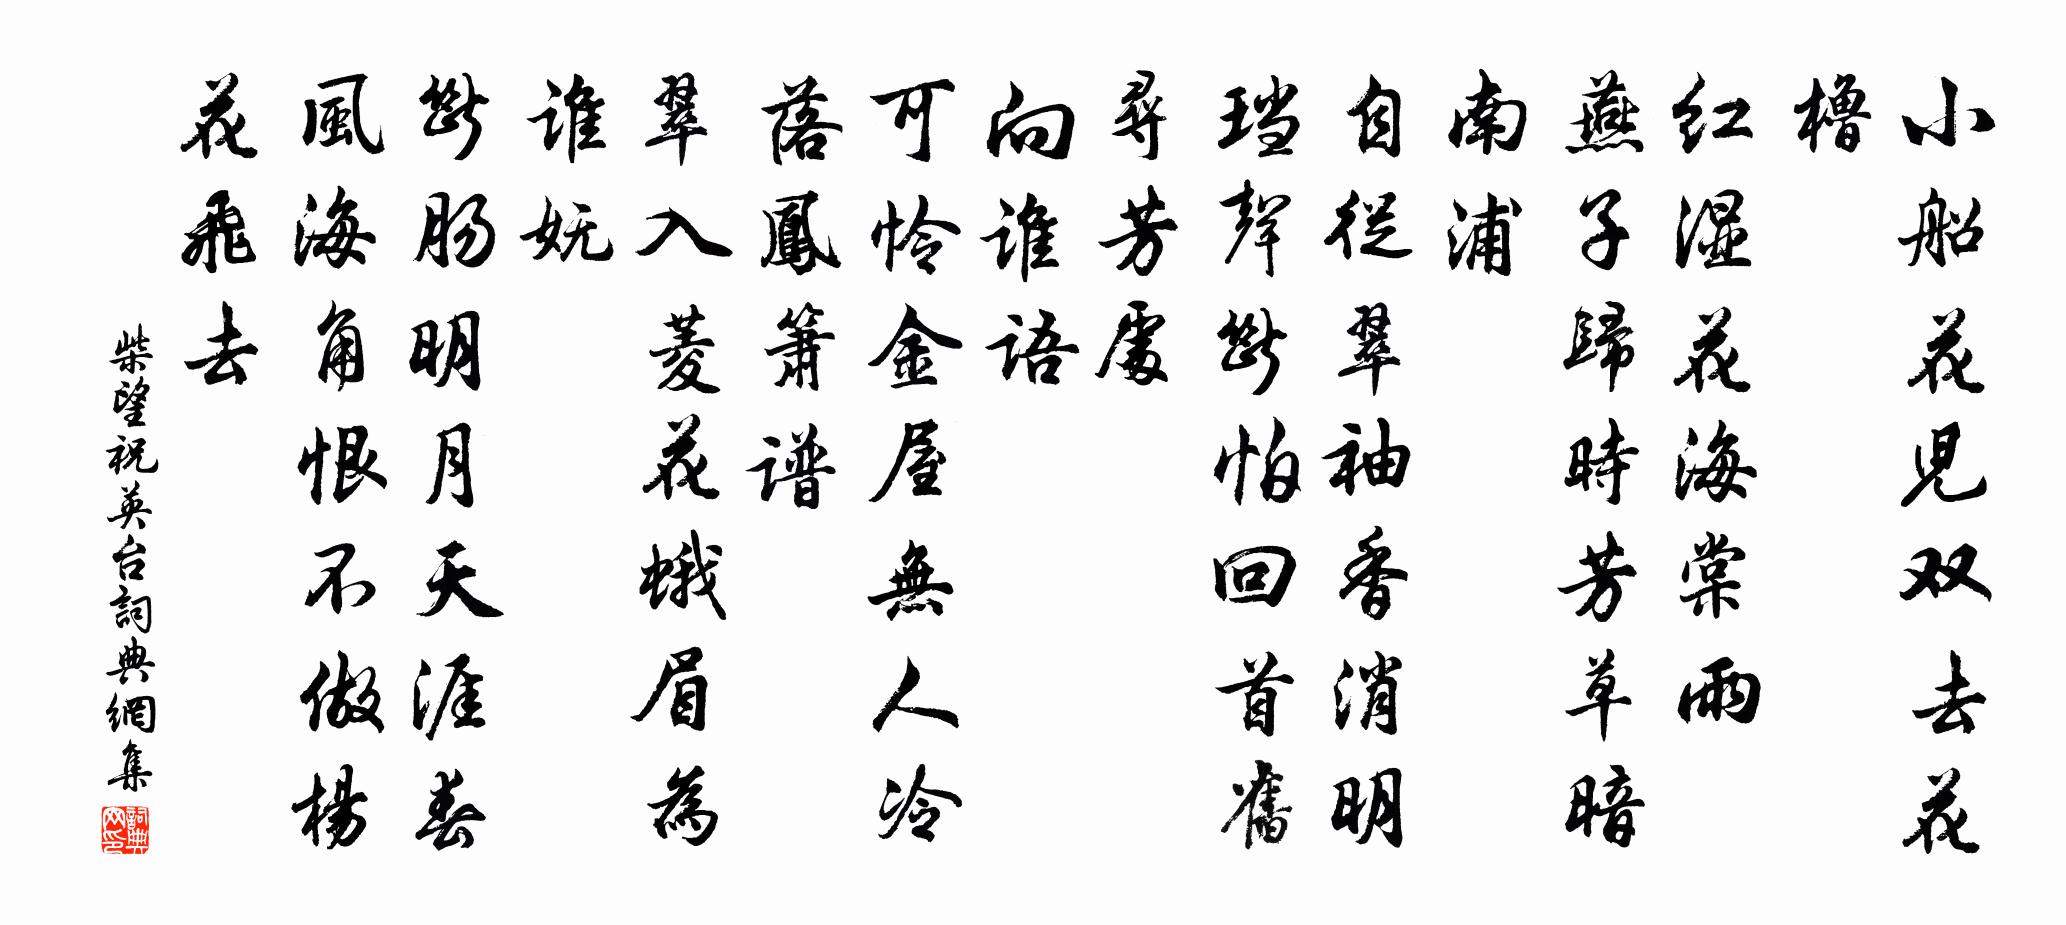 小船花儿双去花
橹
红湿花海棠雨
燕子歸時芳草暗
南浦
自從翠袖香消明
珰聲斷怕回首舊
尋芳處
向誰語
可怜金屋無人冷
落鳳箫譜
翠入菱花蛾眉為
誰妩
斷肠明月天涯春
風海角恨不做楊
花飛去
柴望祝英台詞典網集
詞典网印